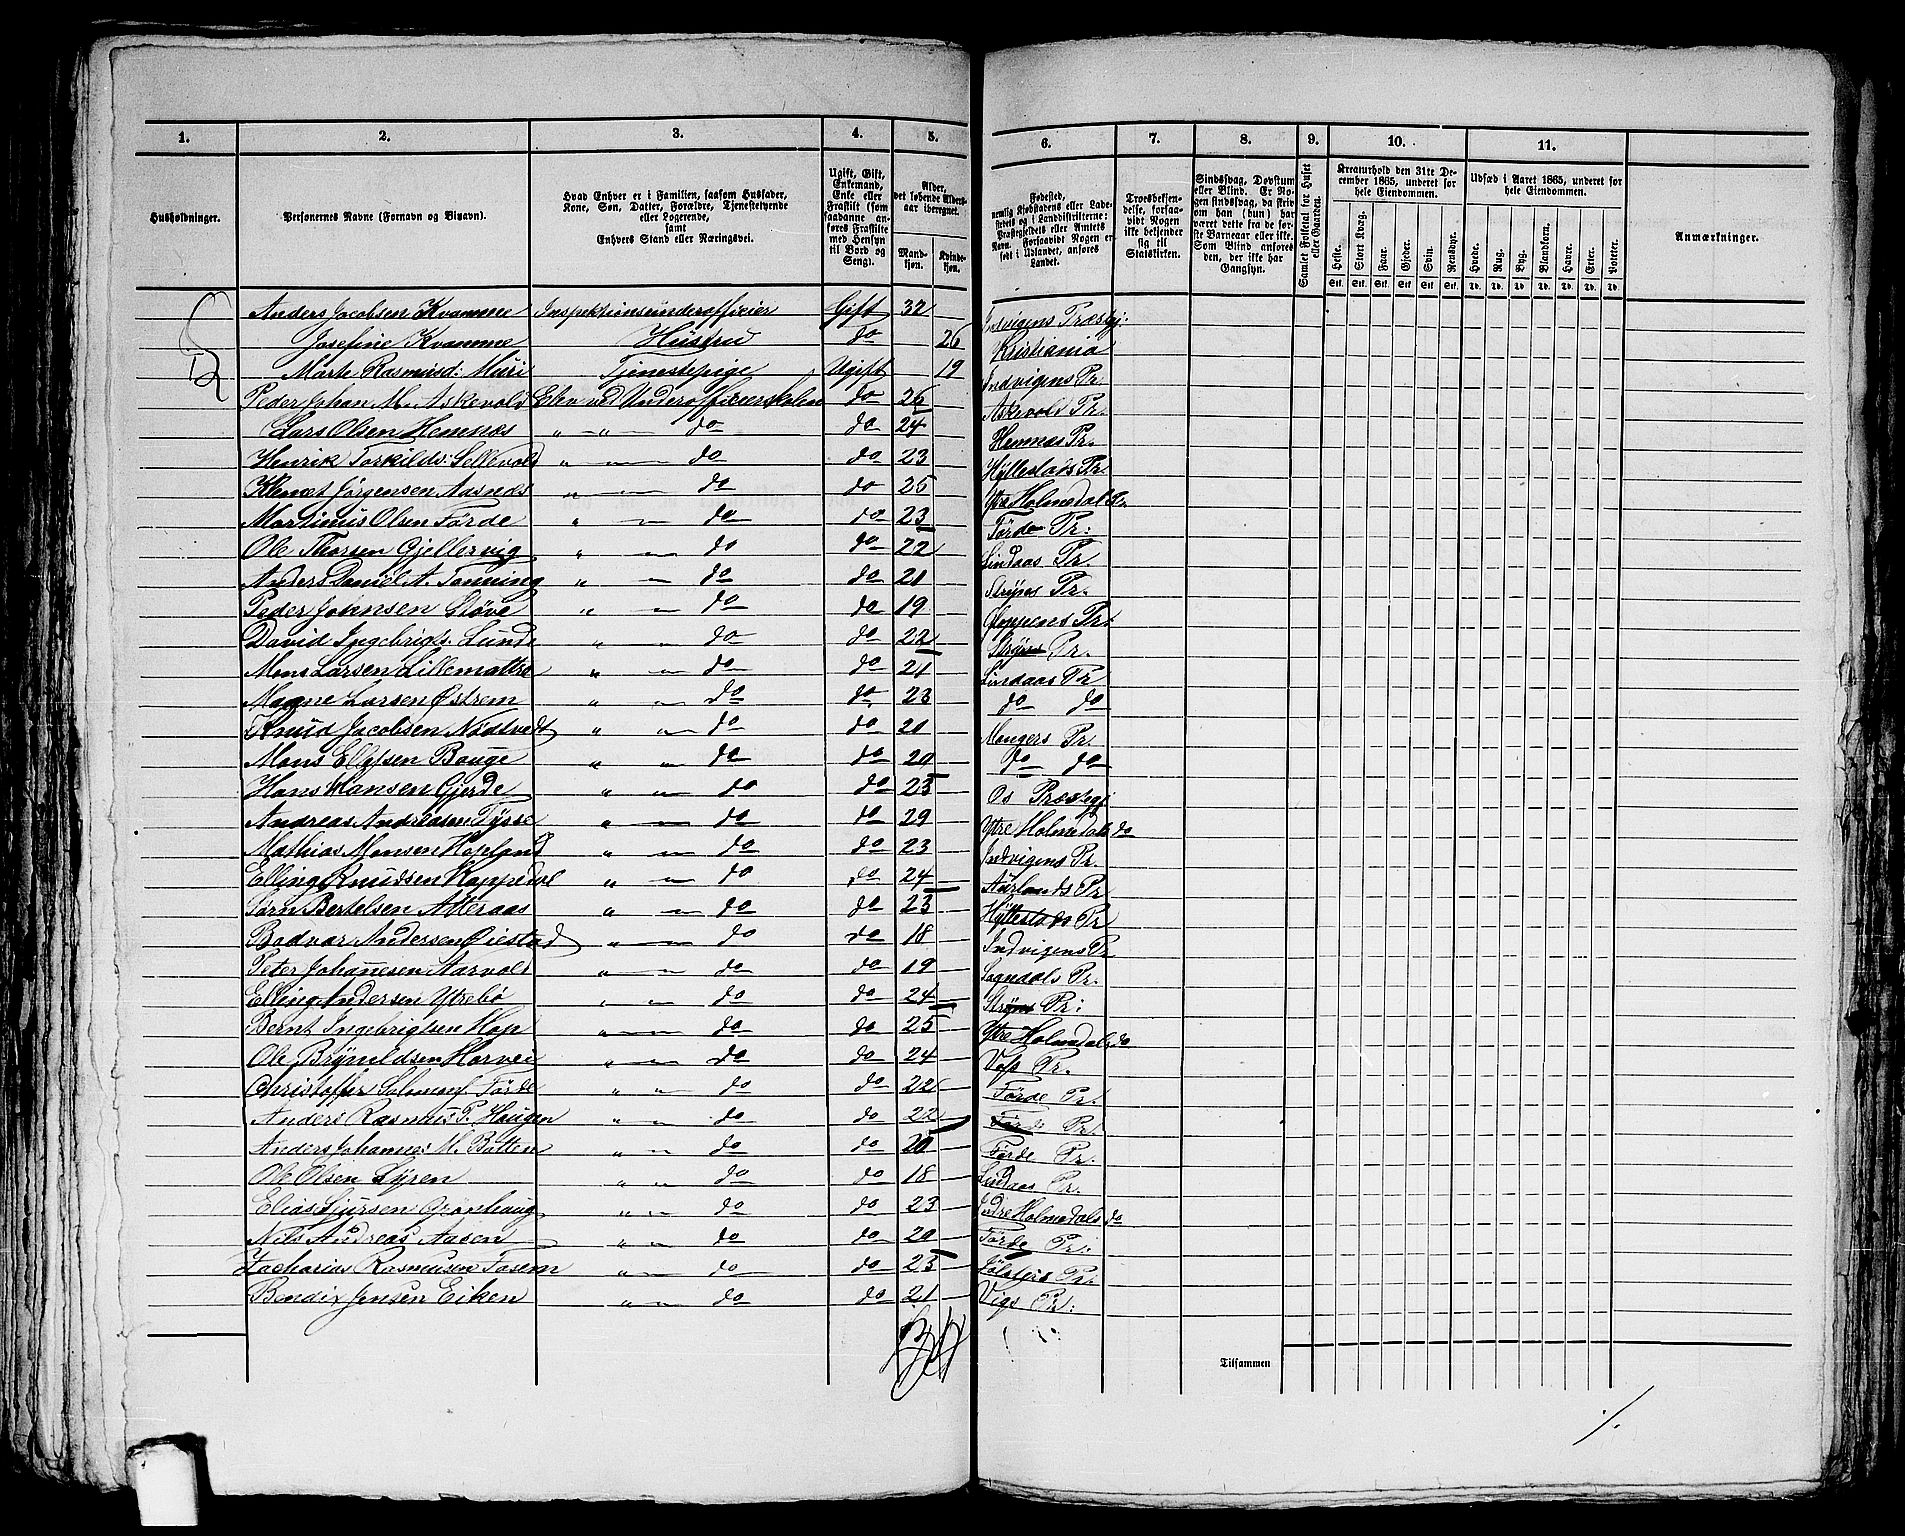 1. 2. 3. 4. 5. 6. 7. 8. 9. 10. 11.
Husholdninger.
Personernes Navne (Fornavn og Tilnavn).
Hvad Enhver er i Familien, saasom Husfader, Kone, Søn, Datter, Forældre, Tjenestetyende eller Logerende, samt Enhvers Stand eller Næringsvei.
Ugift, Gift, Enkemand, Enke eller Fraskilt (som saadanne anføres Fraskilte med Hensyn til Bord og Seng).
Alder, det løbende Aldersaar iberegnet.
Mandkjøn. Kvindekjøn.
Fødested, nemlig Kjøbstadens eller Ladestedets og i Landdistrikterne: Præstegjeldets eller Amtets Navn. Forsaavidt Nogen er født i Udlandet, anføres Landet.
Troesbekjendelse, forsaavidt Nogen ikke bekjender sig til Statskirken.
Sindssvag, Døvstum eller Blind. Er Nogen sindssvag, da skriv om han (hun) har været dette fra de første Barneaar eller ikke. Som Blind anføres den, der ikke har Gangsyn.
Samlet Folketal for Huset eller Gaarden.
Kreaturhold den 31te December 1865, underet for hele Eiendommen.
Heste. Stort Kvæg. Faar. Gjeder. Svin. Rensdyr.
Stk. Stk. Stk. Stk. Stk. Stk.
Udsæd i Aaret 1865, underet for hele Eiendommen.
Hvede. Rug. Byg. Blandkorn. Havre. Erter. Poteter.
Td. Td. Td. Td. Td. Td. Td.
Anmærkninger.
Anders Jacobsen Kvamme Inspektionsunderofficier Gift 32 Indvigens Præstgj:
Josefine Kvamme Hustru do 26 Kristiania
Marte Rasmusd: Muri Tjenestepige Ugift 19 Indvigens Pr:
Peder Johan M. Askevold Elev ved Underofficierskolen do 26 Askevold Pr.
Lars Olsen Hennæs " " do do 24 Hennæs Pr.
Henrik Torkilds: Sellevold " " do do 23 Hyllestads Pr
Klemet Jørgensen Aasnæs " " do do 25 Ytre Holmedal Pr.
Martinus Olsen Førde " " do do 23 Førde Pr:
Ole Thorsen Gjellervig " " do do 22 Lindaas Pr.
Anders Daniel A. Tonning " " do do 21 Stryns Pr.
Peder Johnsen Støve " " do do 19 Gloppenes Pr:
David Ingebrigts. Lunde " " do do 22 Stryns Pr.
Mons Larsen Lillemattre " " do do 21 Lindaas Pr
Magne Larsen Østrem " " do do 23 do do
Knud Jacobsen Nodtvedt " " do do 21 Mangers Pr.
Mons Ellefsen Bauge " " do do 20 do do
Hans Hansen Gjerde " " do do 23 Os Præstegj
Andreas Andreasen Tysse " " do do 29 Ytre Holmedals do
Mathias Monsen Hopland " " do do 23 Indvigens Pr.
Elling Knudsen Kappedal " " do do 24 Aurlands Pr
Søren Bertelsen Atteraas " " do do 23 Hyllestads Pr
Bodvar Andersen Øiestad " " do do 18 Indvigens Pr
Peter Johannesen Aarvold " " do do 19 Sogndals Pr.
Elling Andersen Ytrebø " " do do 24 Stryns Pr:
Bernt Ingebrigtsen Hop " " do do 25 Ytre Holmedals do
Ole Brynildsen Horvei " " do do 24 Voss Pr.
Christoffer Salomons. Førde " " do do 22 Førde Pr.
Anders Rasmus P. Haugen " " do do 22 Førde Pr.
Anders Johannes M. Botten " " do do 20 Førde Pr.
Ole Olsen Syren " " do do 18 Lindaas Pr.
Elias Sjursen Grønhaug " " do do 23 Indre Holmedals do
Nils Andreas Aasen " " do do 20 Førde Pr:
Zacharias Rasmusen Fosem " " do do 23 Jølsters Pr.
Bendix Jensen Eiken " " do do 21 Vigs Pr:
Tilsammen